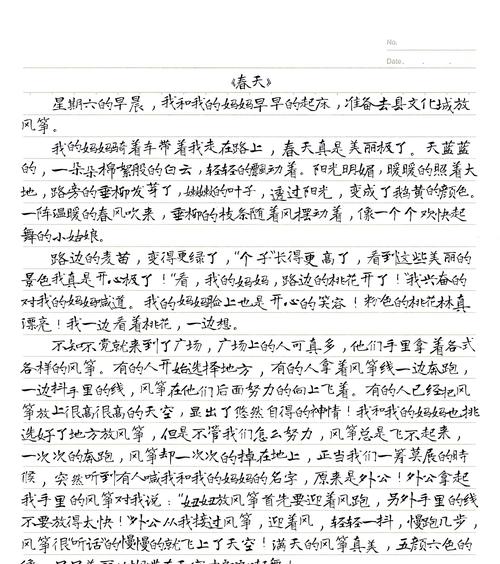 No.
Date
《春天》
星期六的早晨，我和我的妈妈早早的起床，准备去县文化城放
风筝。
我的妈妈骑着车带着我走在路上，春天真是美丽极了。天蓝蓝
的，一朵朵棉絮般的白云，轻轻的飘动着。阳光明媚，暖暖的照着大
地，路旁的垂柳发芽了，嫩嫩的叶子，透过阳光，变成了鹅黄的颜色。
一阵温暖的春风吹来，垂柳的枝条随着风摆动着，像一个个欢快起
舞的小姑娘。
路边的麦苗，变得更绿了，"个子"长得更高了，看到这些美丽的
景色我真是开心极了！"看，我的妈妈，路边的桃花开了！"我兴奋的
对我的妈妈喊道。我的妈妈脸上也是开心的笑容！粉色的桃花林真
漂亮！我一边看着桃花，一边想。
不知不觉就来到了广场，广场上的人可真多，他们手里拿着各式
各样的风筝。有的人开始选择地方，有的人拿着风筝线一边奔跑，
一边抖手里的线，风筝在他们后面努力的向上飞着。有的人已经把风
筝放上很高很高的天空，显出了悠然自得的神情！我和我的妈妈也挑
选好了地方放风筝，但是不管我们怎么努力，风筝总是飞不起来，
一次次的奔跑，风筝却一次次的掉在地上，正当我们一筹莫展的时
候，突然听到有人喊我和我的妈妈的名字，原来是外公！外公拿起
我手里的风筝对我说："妞妞放风筝首先要迎着风跑，另外手里的线
不要放得太快！"外公从我接过风筝，迎着风，轻轻一抖，慢跑几步，
风筝很"听话"的慢慢的就飞上了天空！满天的风筝真美，五颜六色的